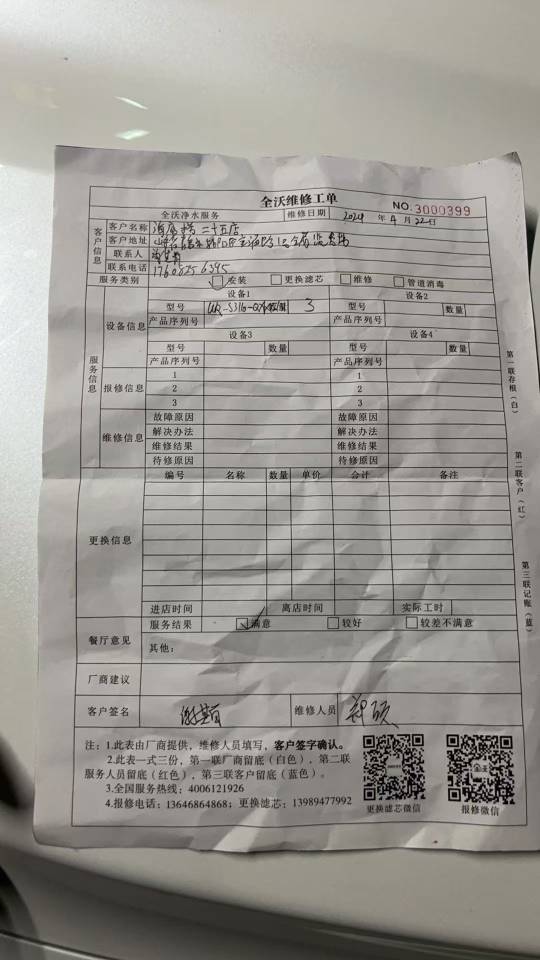 全沃维修工单
NO. 3000399
全沃净水服务 维修日期 2024 年 4 月 22 日
客户信息
客户名称 二十五店
客户地址
联系人
联系电话 17608256395
服务类别 安装 更换滤芯 维修 管道消毒
服务信息
设备信息
设备1 设备2
型号 3 型号 数量
产品序列号 产品序列号
设备3 设备4
型号 数量 型号 数量
产品序列号 产品序列号
报修信息
1 1
2 2
3 3
维修信息
故障原因 故障原因
解决办法 解决办法
维修结果 维修结果
待修原因 待修原因
更换信息
编号 名称 数量 单价 合计 备注
进店时间 离店时间 实际工时
餐厅意见
服务结果 满意 较好 较差不满意
其他：
厂商建议
客户签名 维修人员 郑硕
注：1.此表由厂商提供，维修人员填写，客户签字确认。
2.此表一式三份，第一联厂商留底（白色），第二联
服务人员留底（红色），第三联客户留底（蓝色）。
3.全国服务热线：4006121926
4.报修电话：13646864868；更换滤芯：13989477992
更换滤芯微信 报修微信
第一联存根（白）
第二联客户（红）
第三联记账（蓝）